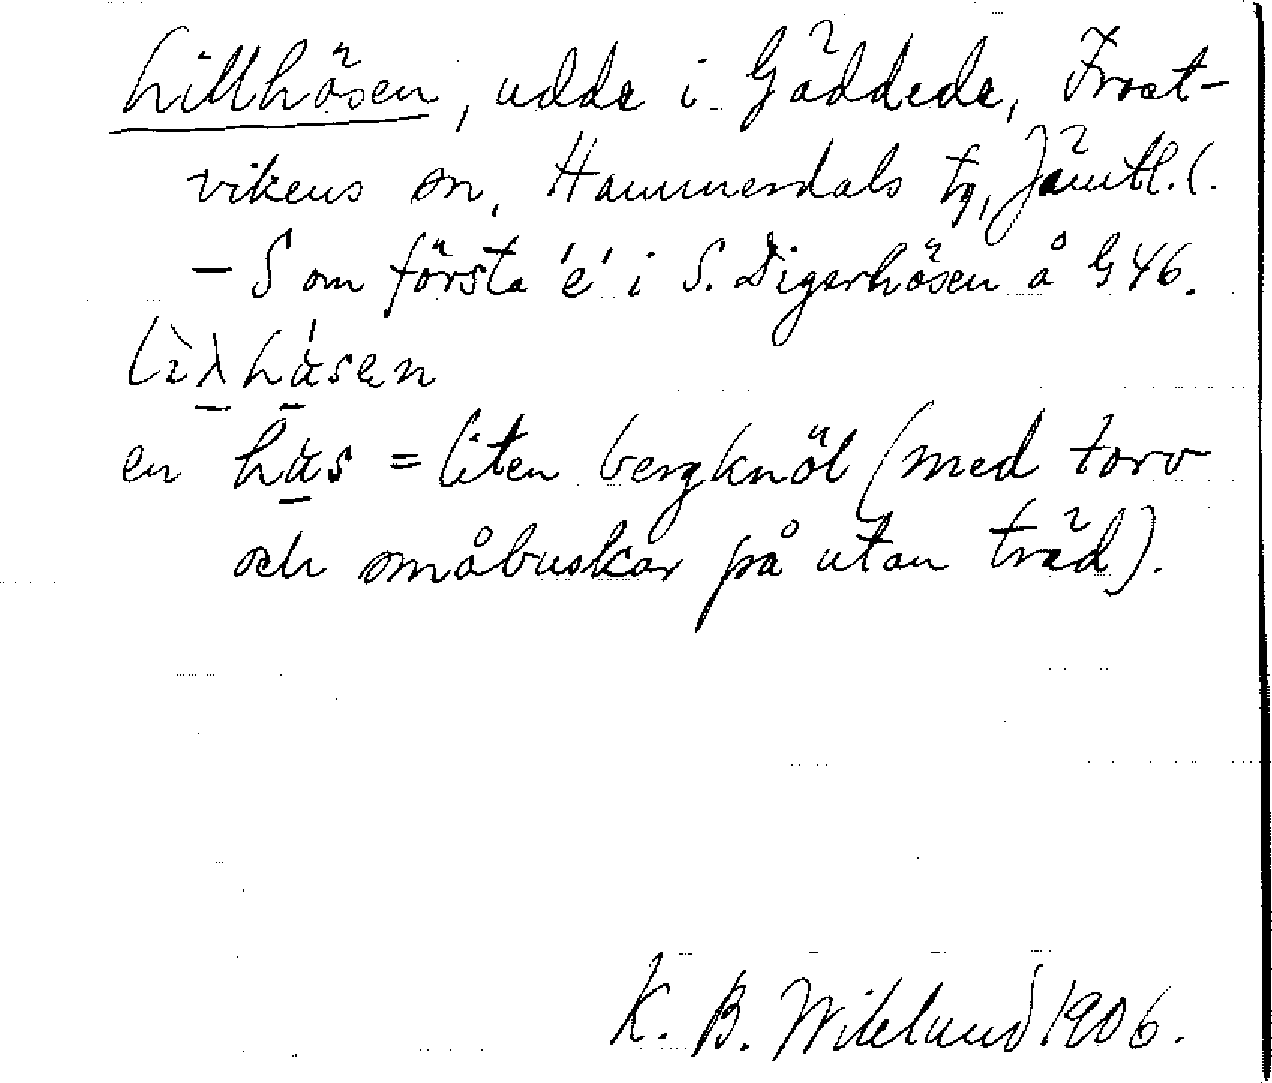 Lillhösen, udde i Gäddede, Frost-
vikens sn, Hammerdals tg, Jämtl. l.
— S om första 'e' i S. Digerhösen å G46.
en = liten bergknöl (med torv
och småbuskar på utan träd).
K. B. Wiklund 1906.